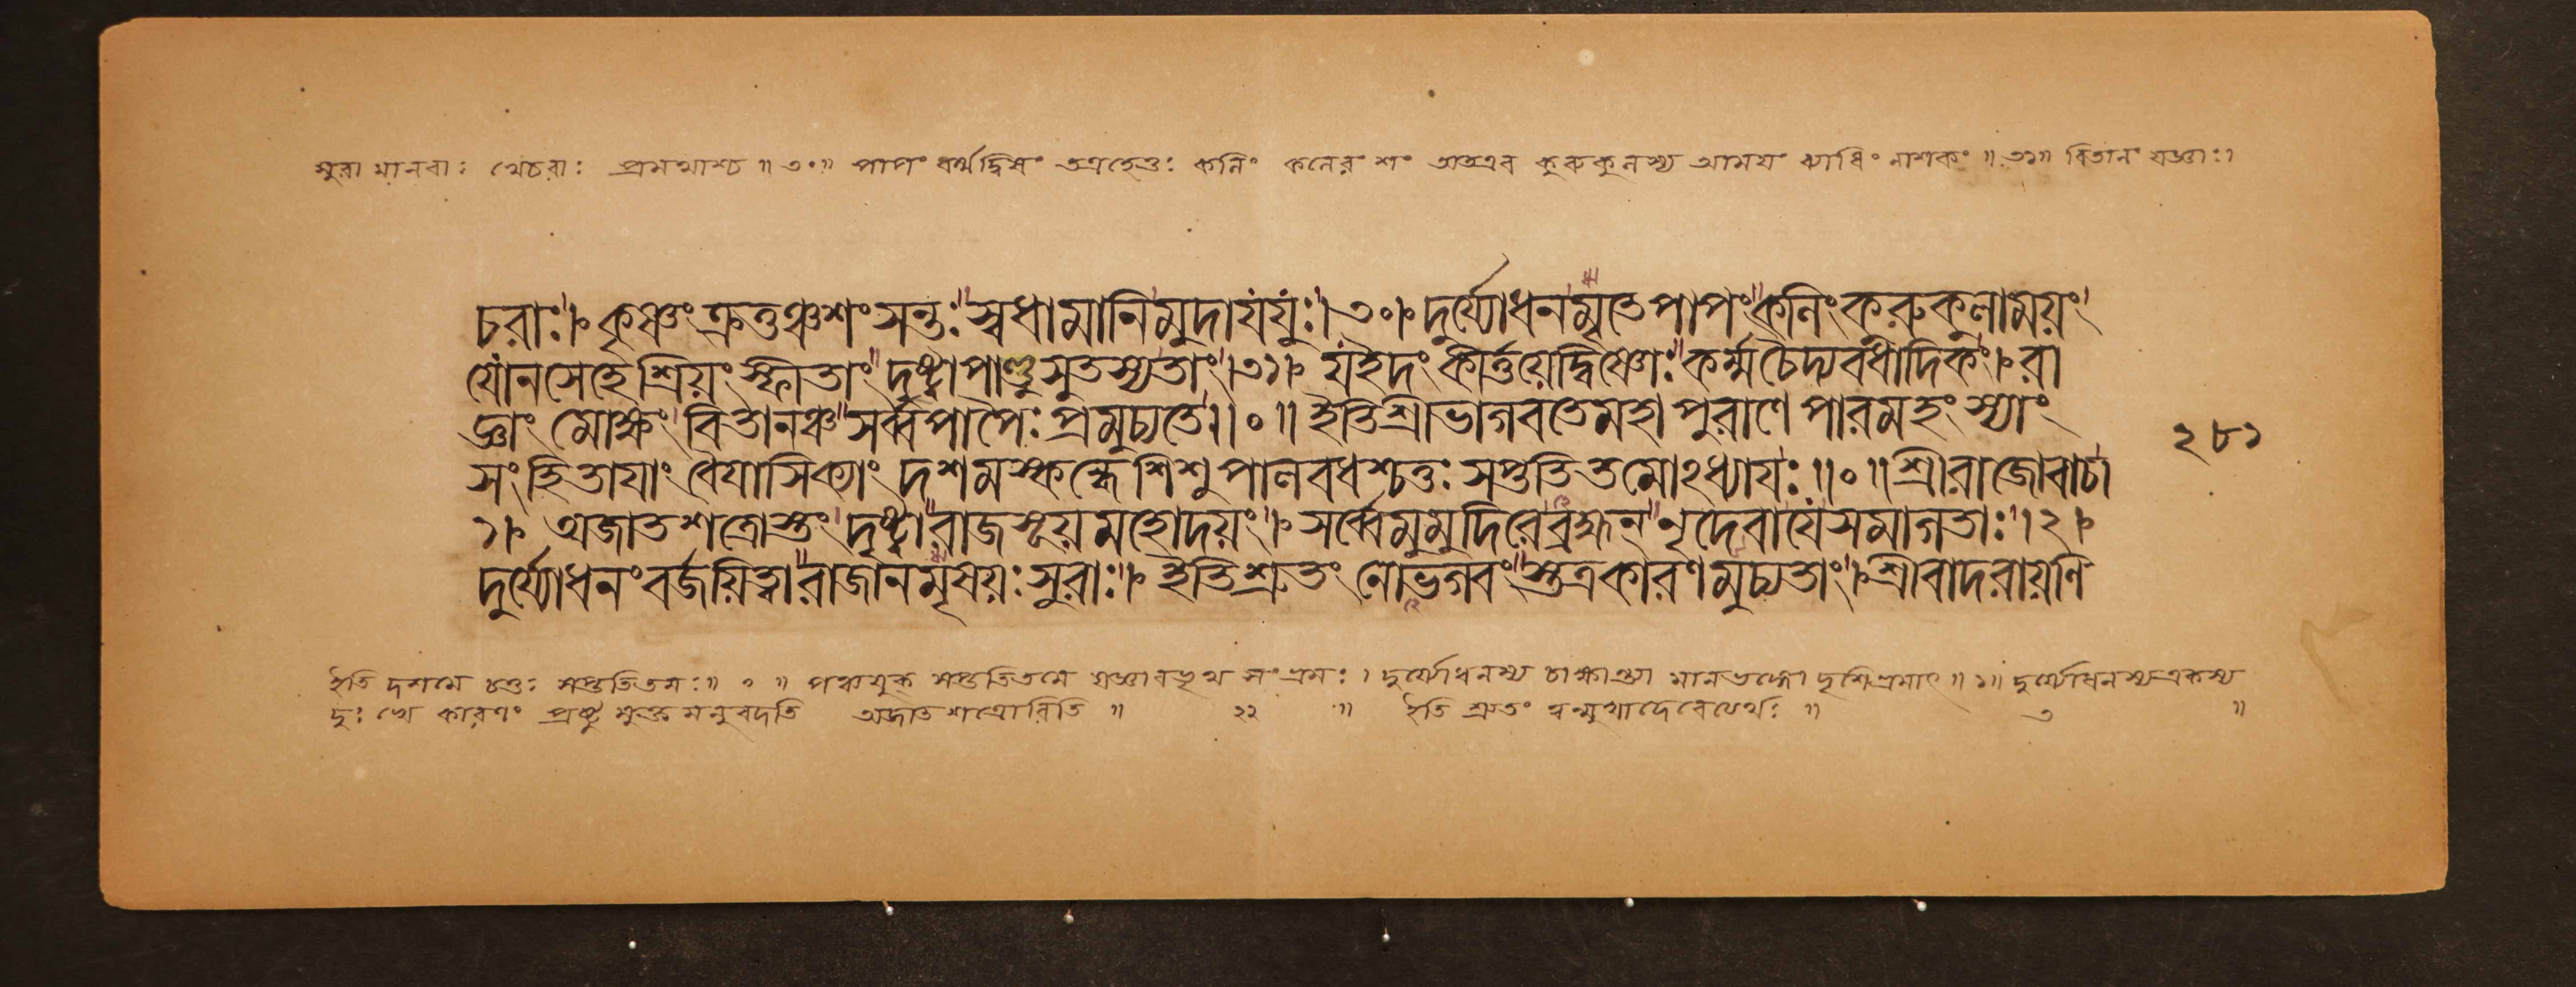 সুরা মানবাঃ খেচরাঃ প্রমথাশ্চ ॥ ৩০॥ পাপং ধর্ম্মদ্বিষং তত্রহেতুঃ কলিং কলেরংশং অতএব কুরুকুলস্য আময়ং ব্যাধিং নাশকং ॥ ৩১॥ বিতানং যজ্ঞাঃ।
চরাঃ। কৃষ্ণং ক্রতুঞ্চশংসন্তঃ স্বধামানিমুদাযযুঃ। ৩০। দুর্য্যোধনমৃতেপাপং কলিংকরুকুলাময়ং
যোনসেহেশ্রিয়ংস্ফীতাং দৃষ্ট্বাপাণ্ডুসুতস্যতাং। ৩১। যইদং কীর্ত্তয়েদ্বিষ্ণোঃ কর্ম্মচৈদ্যবধাদিকং। রা
জ্ঞাং মোক্ষং বিতানঞ্চ সর্ব্বপাপৈঃ প্রমুচ্যতে॥ ০ ॥ ইতিশ্রীভাগবতেমহাপুরাণে পারমহংস্যাং
২৮১
সংহিতাযাং বৈযাসিক্যাং দশমস্কন্ধেশিশুপালবধশ্চতুঃসপ্ততিতমোঽধ্যাযঃ ॥ ০ ॥ শ্রীরাজোবাচ।
১। অজাতশত্রোস্তং দৃষ্ট্বারাজসূয়মহোদয়ং। সর্ব্বেমুমুদিরেব্রহ্মন্ নৃদেবাযেসমাগতাঃ। ২।
দুর্য্যোধনংবর্জয়িত্বারাজানমৃষয়ঃসুরাঃ। ইতিশ্রুতং নোভগবংস্তত্রকারণমুচ্যতাং। শ্রীবাদরায়ণি
ইতি দশমে চতুঃ সপ্ততিতমঃ॥ ০ ॥ পঞ্চযুক্ সপ্ততিতমে যজ্ঞাবভৃথ সংভ্রমঃ। দুর্য্যোধনস্য চাক্ষাণ্ড্যা মানভঙ্গো দৃশিভ্রমাৎ ॥ ১॥ দুর্য্যোধনস্যএকস্য
দুঃখে কারণং প্রষ্টু মুক্ত মনুবদতি অজাতশত্রোরিতি ॥ ২২ ॥ ইতি শ্রুতং ত্বন্মুখাদেবেত্যর্থঃ ॥ ৩ ॥